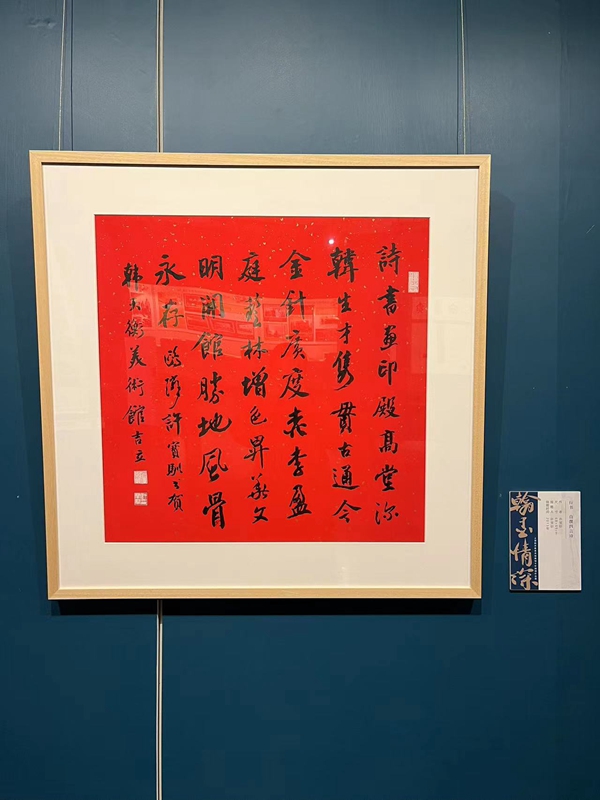 詩書画印殿高堂深
韓生才雋貫古通今
金針廣度桃李盈
庭藝林增色昇華文
明開館勝地風骨
永存 許寶 賀
韓天衡美術館吉立
翰墨情深